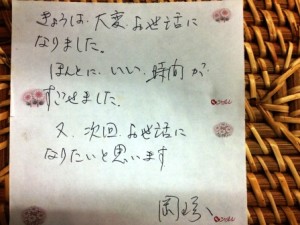 きょうは、大変お世話に
なりました。
ほんとに、いい、時間が
すごせました。
又、次回、お世話に
なりたいと思います
岡